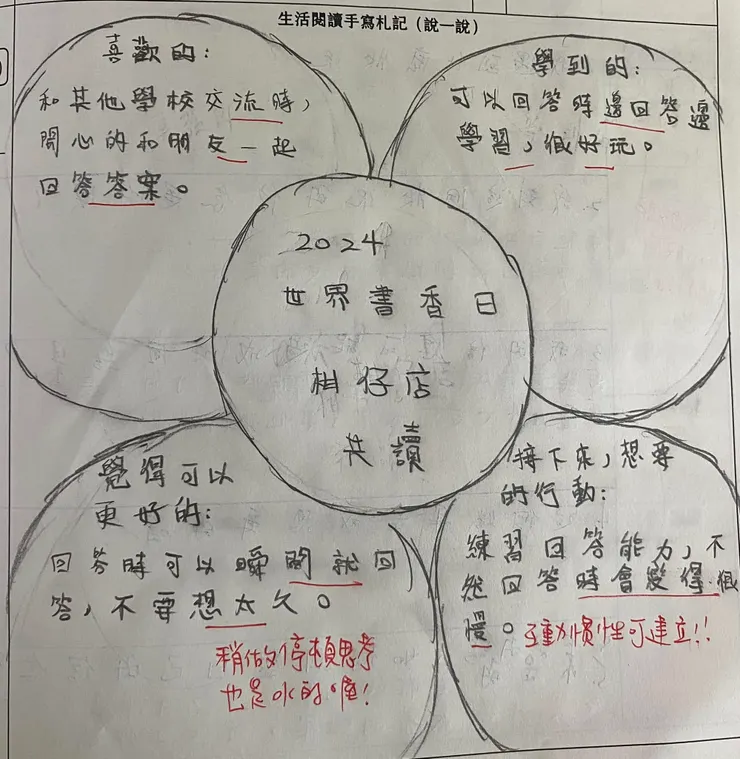 生活閱讀手寫札記（說一說）
喜歡的：
和其他學校交流時，
開心的和朋友一起
回答答案。
學到的：
可以回答時邊回答邊
學習，很好玩。
2024
世界書香日
柑仔店
共讀
覺得可以
更好的：
回答時可以瞬間就回
答，不要想太久。
稍做停頓思考
也是ok的喔！
接下來，想要
的行動：
練習回答能力，不
然回答時會變得很
慢。互動慣性可建立!!